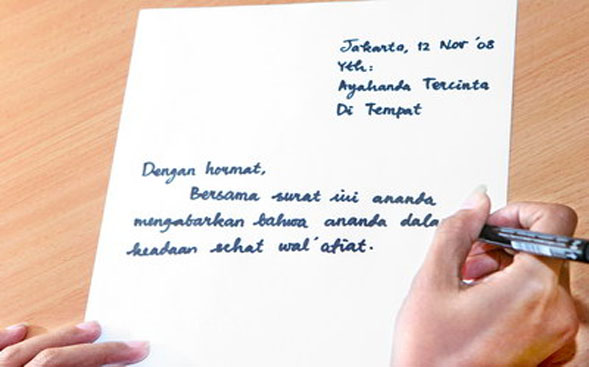 Jakarta, 12 Nov '08
Yth:
Ayahanda Tercinta
Di Tempat
Dengan hormat,
Bersama surat ini ananda
mengabarkan bahwa ananda dala
keadaan sehat wal'afiat.